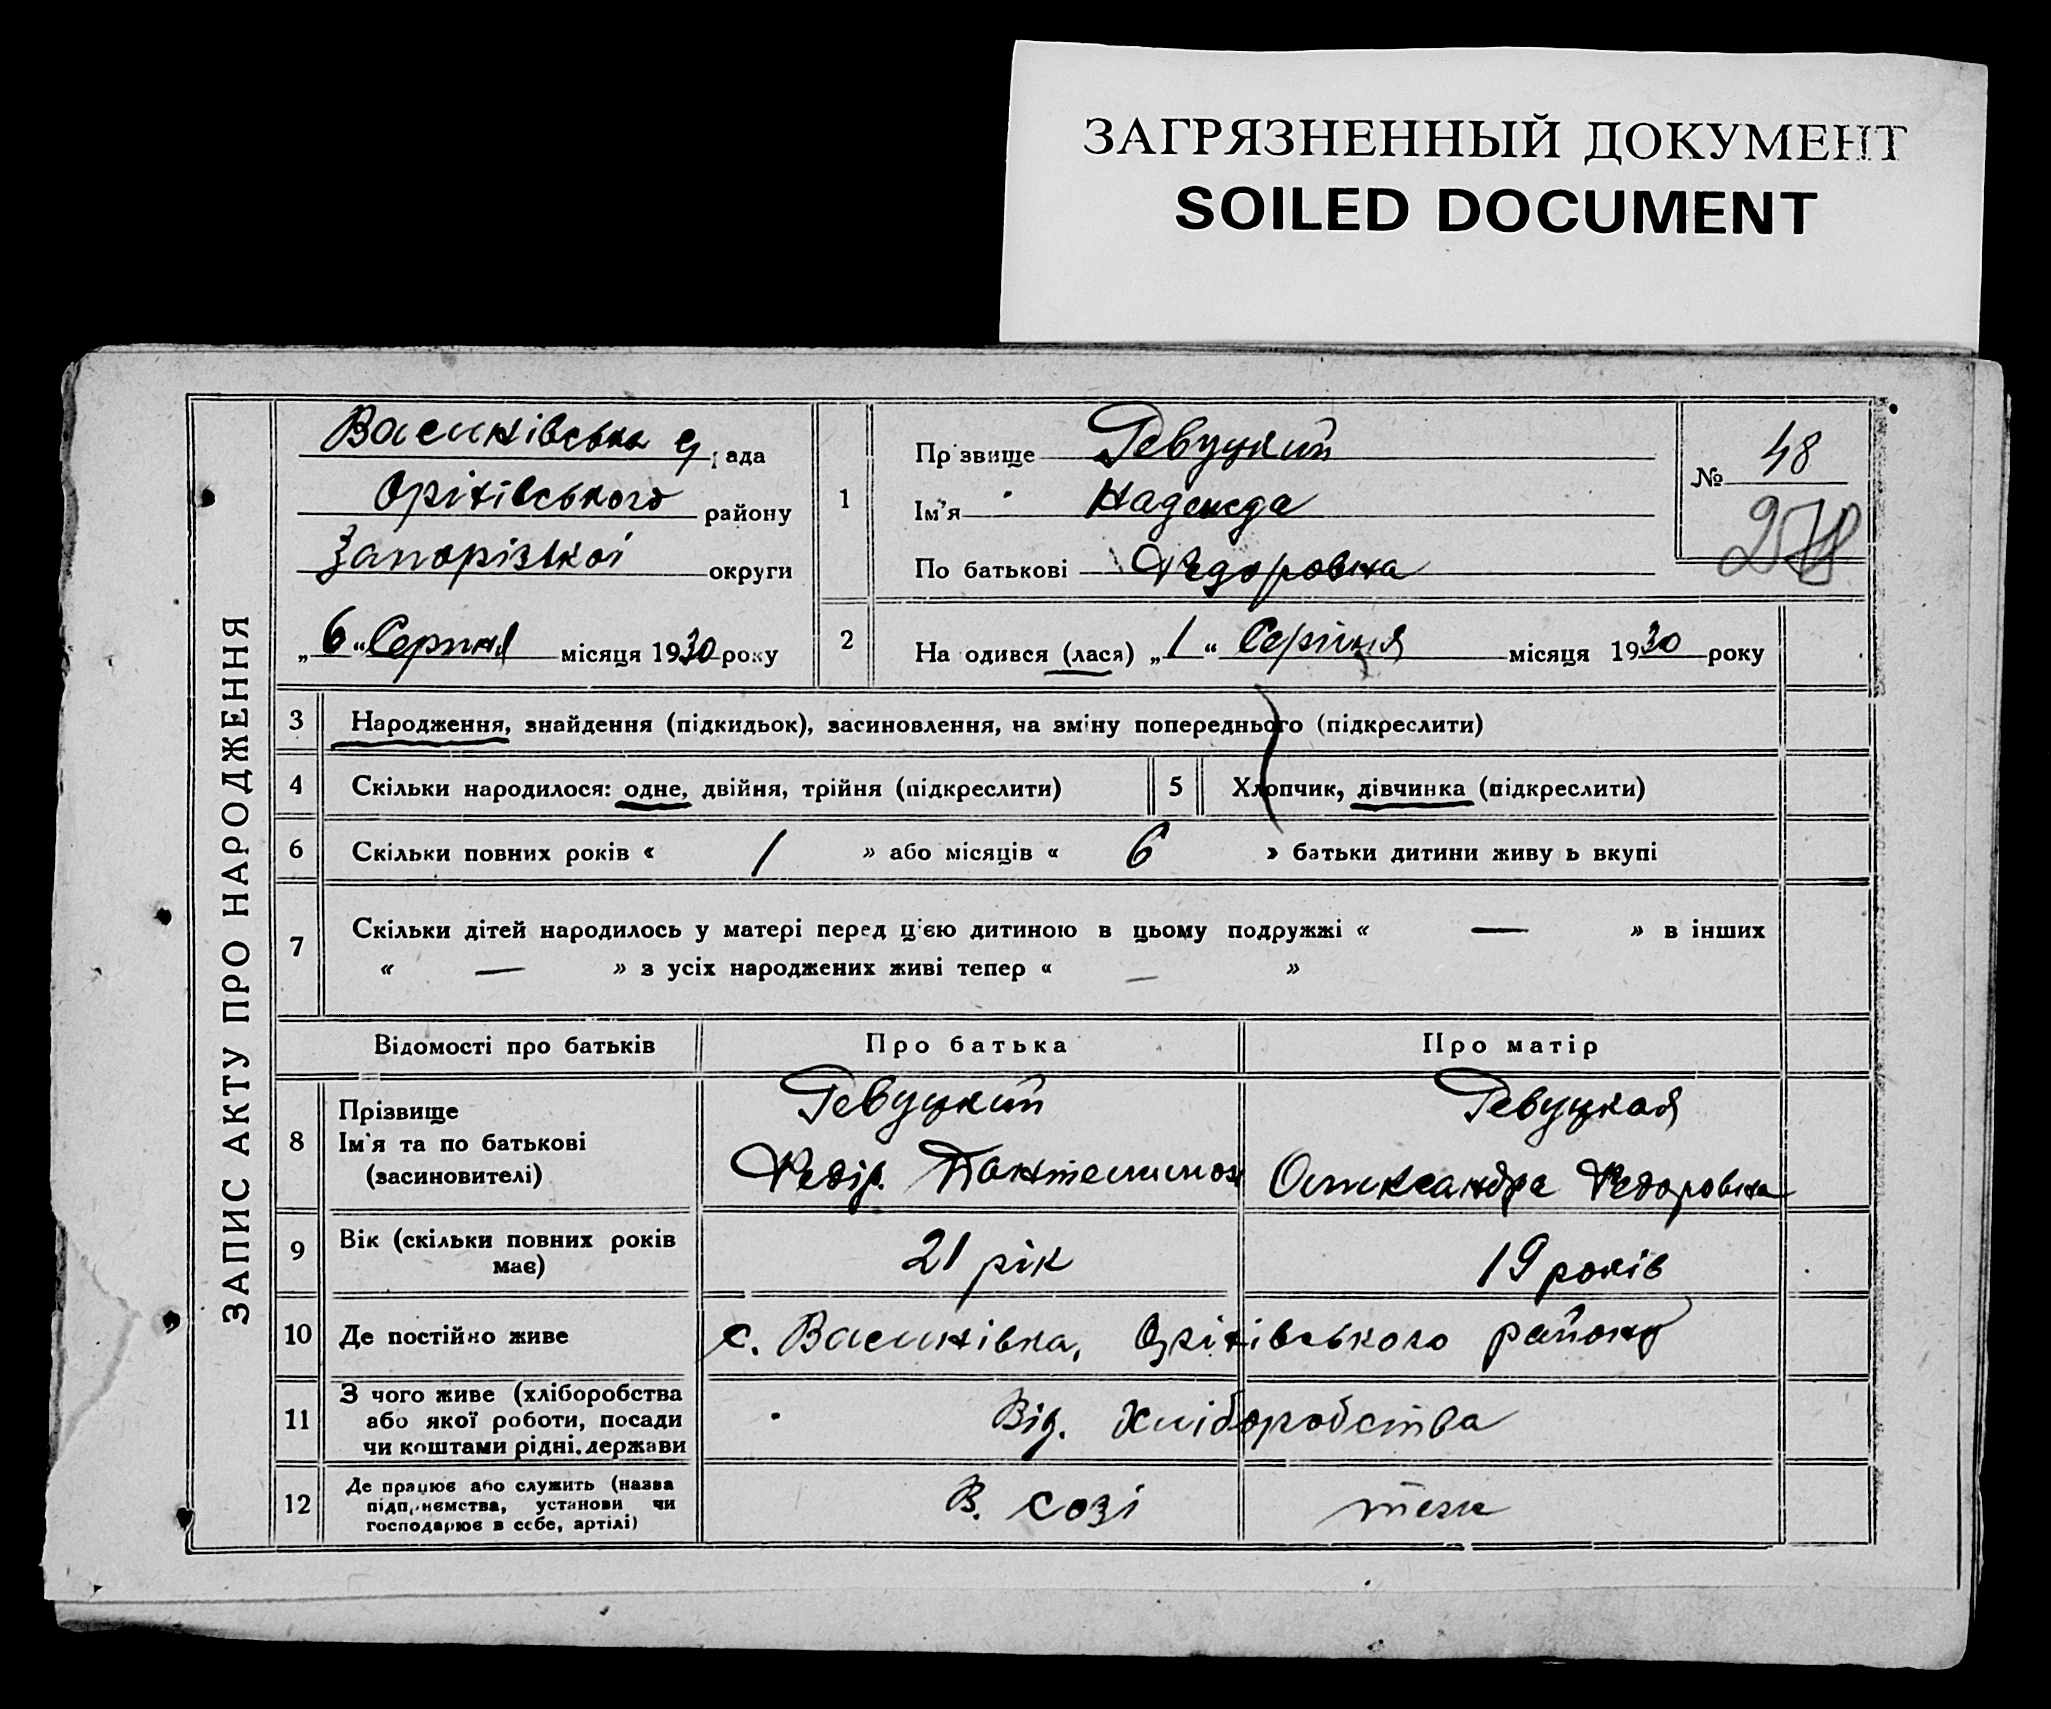 ЗАГРЯЗНЕННЫЙ ДОКУМЕНТ
SOILED DOCUMENT
ЗАПИС АКТУ ПРО НАРОДЖЕННЯ
Василівська с/рада
Оріхівського району
Запорізької округи
„6“ Серпня місяця 1930 року
1
Прізвище Ревуцкий
Ім’я Надежда
По батькові Федоровна
№ 48
2
На одився (лася) „1“ Серпня місяця 1930 року
3 Народження, знайдення (підкидьок), засиновлення, на зміну попереднього (підкреслити)
4 Скільки народилося: одне, двійня, трійня (підкреслити) 5 Хлопчик, дівчинка (підкреслити)
6 Скільки повних років « 1 » або місяців « 6 » батьки дитини живу ь вкупі
7 Скільки дітей народилось у матері перед цією дитиною в цьому подружжі « — » в інших
« — » з усіх народжених живі тепер « — »
Відомості про батьків Про батька Про матір
8 Прізвище
Ім’я та по батькові
(засиновителі)
Ревуцкий
Федір. Пантелимон
Ревуцкая
Олександра Федоровна
9 Вік (скільки повних років
має)
21 рік 19 років
10 Де постійно живе с. Василівка, Оріхівського району
11 З чого живе (хліборобства
або якої роботи, посади
чи коштами рідні. держави
Від. Хліборобства
12 Де працює або служить (назва
підприємства, установи чи
господарює в себе, артілі)
В. созі теж